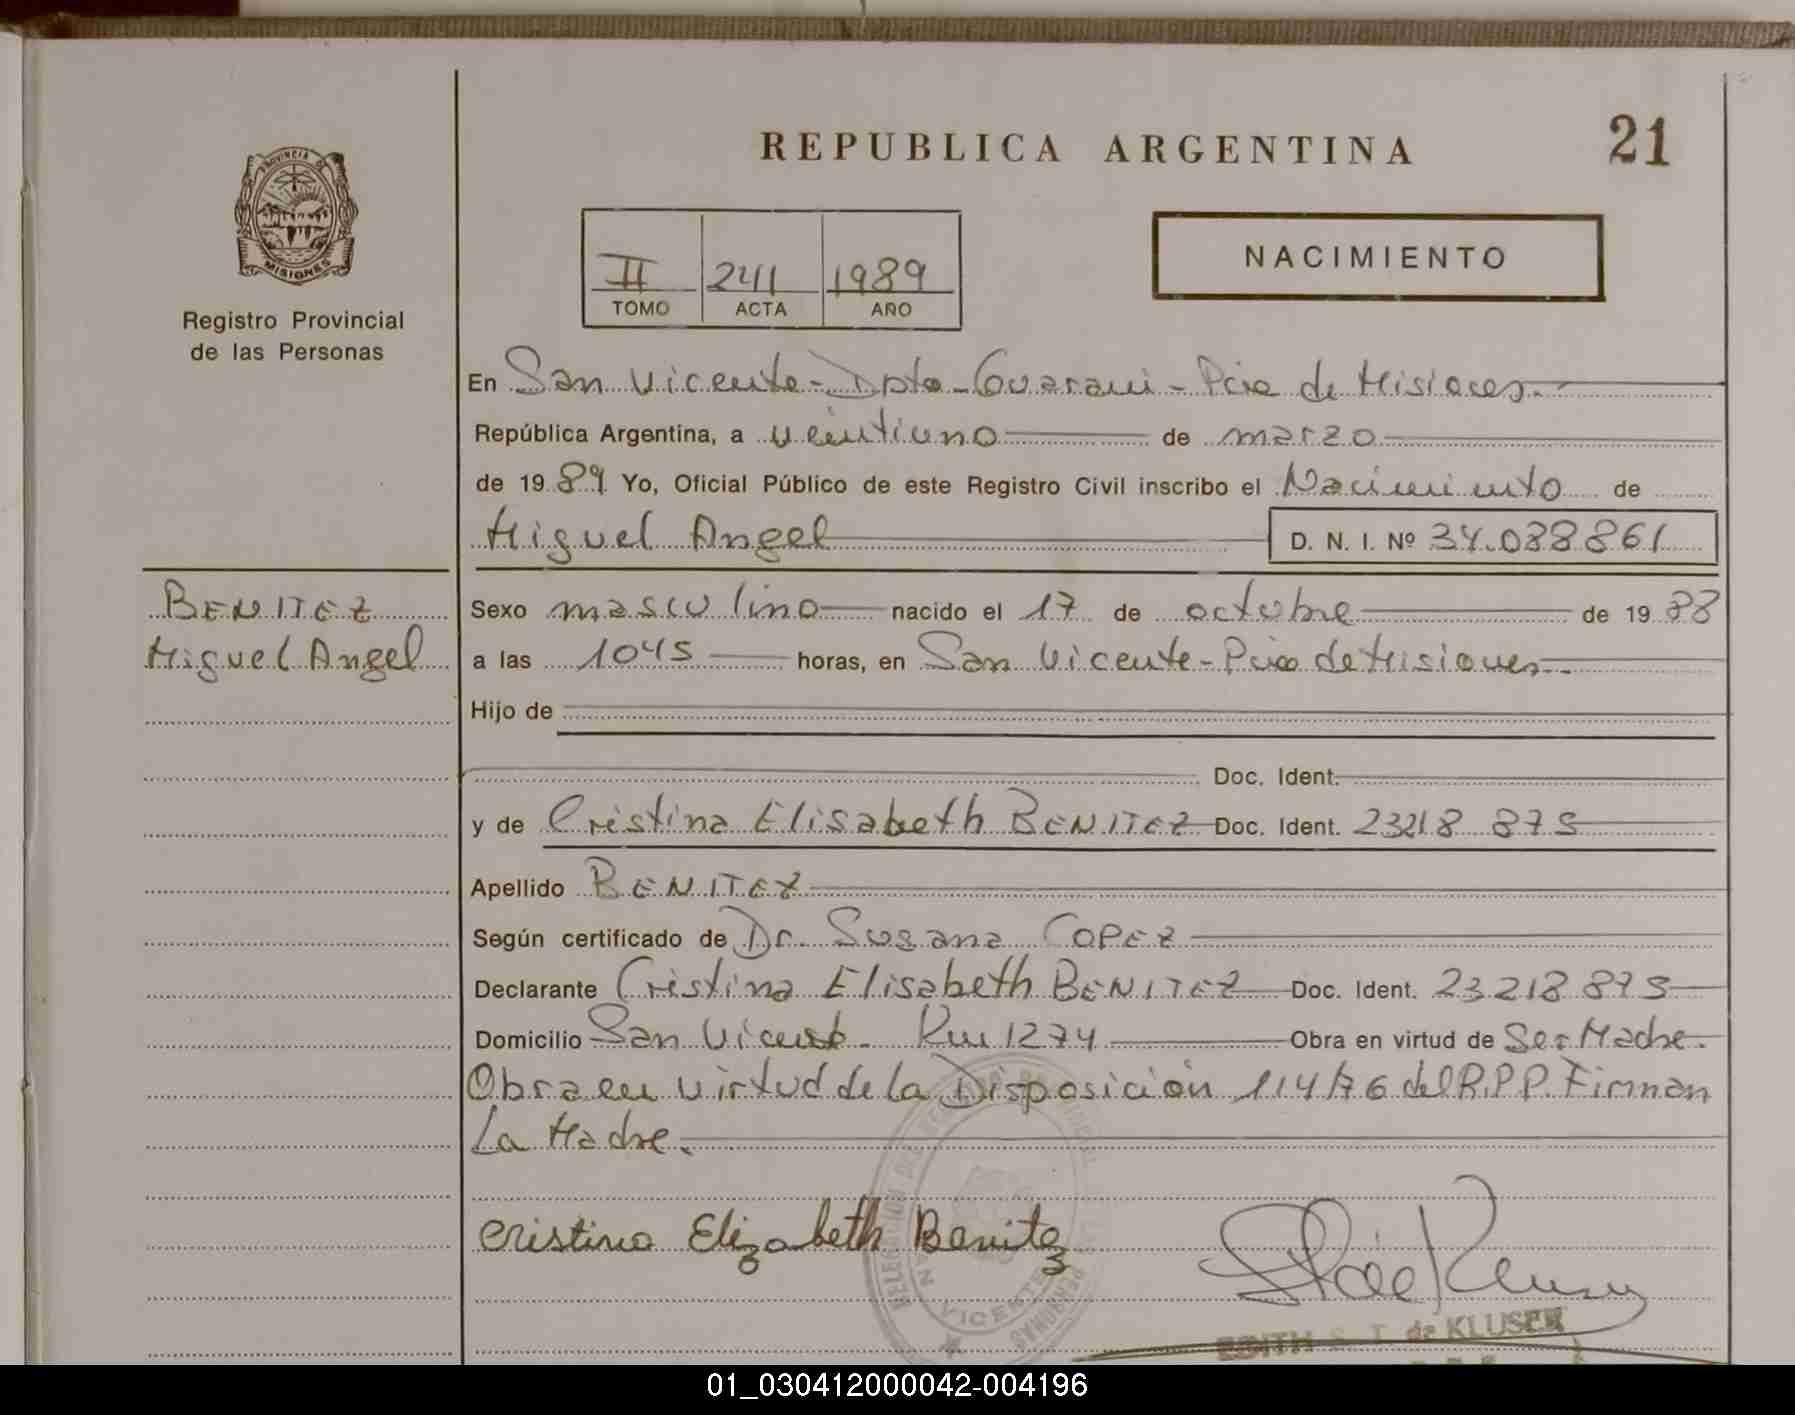 REPUBLICA ARGENTINA
21
PROVINCIA DE
MISIONES
Registro Provincial
de las Personas
II 241 1989
TOMO ACTA AÑO
NACIMIENTO
En San Vicente - Dpto - Guarani - Pcia de Misiones.
República Argentina, a veintiuno de marzo
de 1989 Yo, Oficial Público de este Registro Civil inscribo el Nacimiento de
Miguel Angel D. N. I. Nº 34.088861
BENITEZ
Miguel Angel
Sexo masculino nacido el 17 de octubre de 1988
a las 1045 horas, en San Vicente - Pcia de Misiones
Hijo de
Doc. Ident.
y de Cristina Elisabeth BENITEZ Doc. Ident. 23218 875
Apellido BENITEZ
Según certificado de Dr. Susana COPEZ
Declarante Cristina Elisabeth BENITEZ Doc. Ident. 23 218 875
Domicilio San Vicente - Km 1274 Obra en virtud de Ser Madre.
Obra en virtud de la Disposición 114/76 del R.P.P. Firman
La Madre.
Cristina Elizabeth Benitez
DELEGACION DEL REGISTRO PROVINCIAL
PERSONAS
SAN VICENTE
EDITH S. T. de KLUSER
01_030412000042-004196